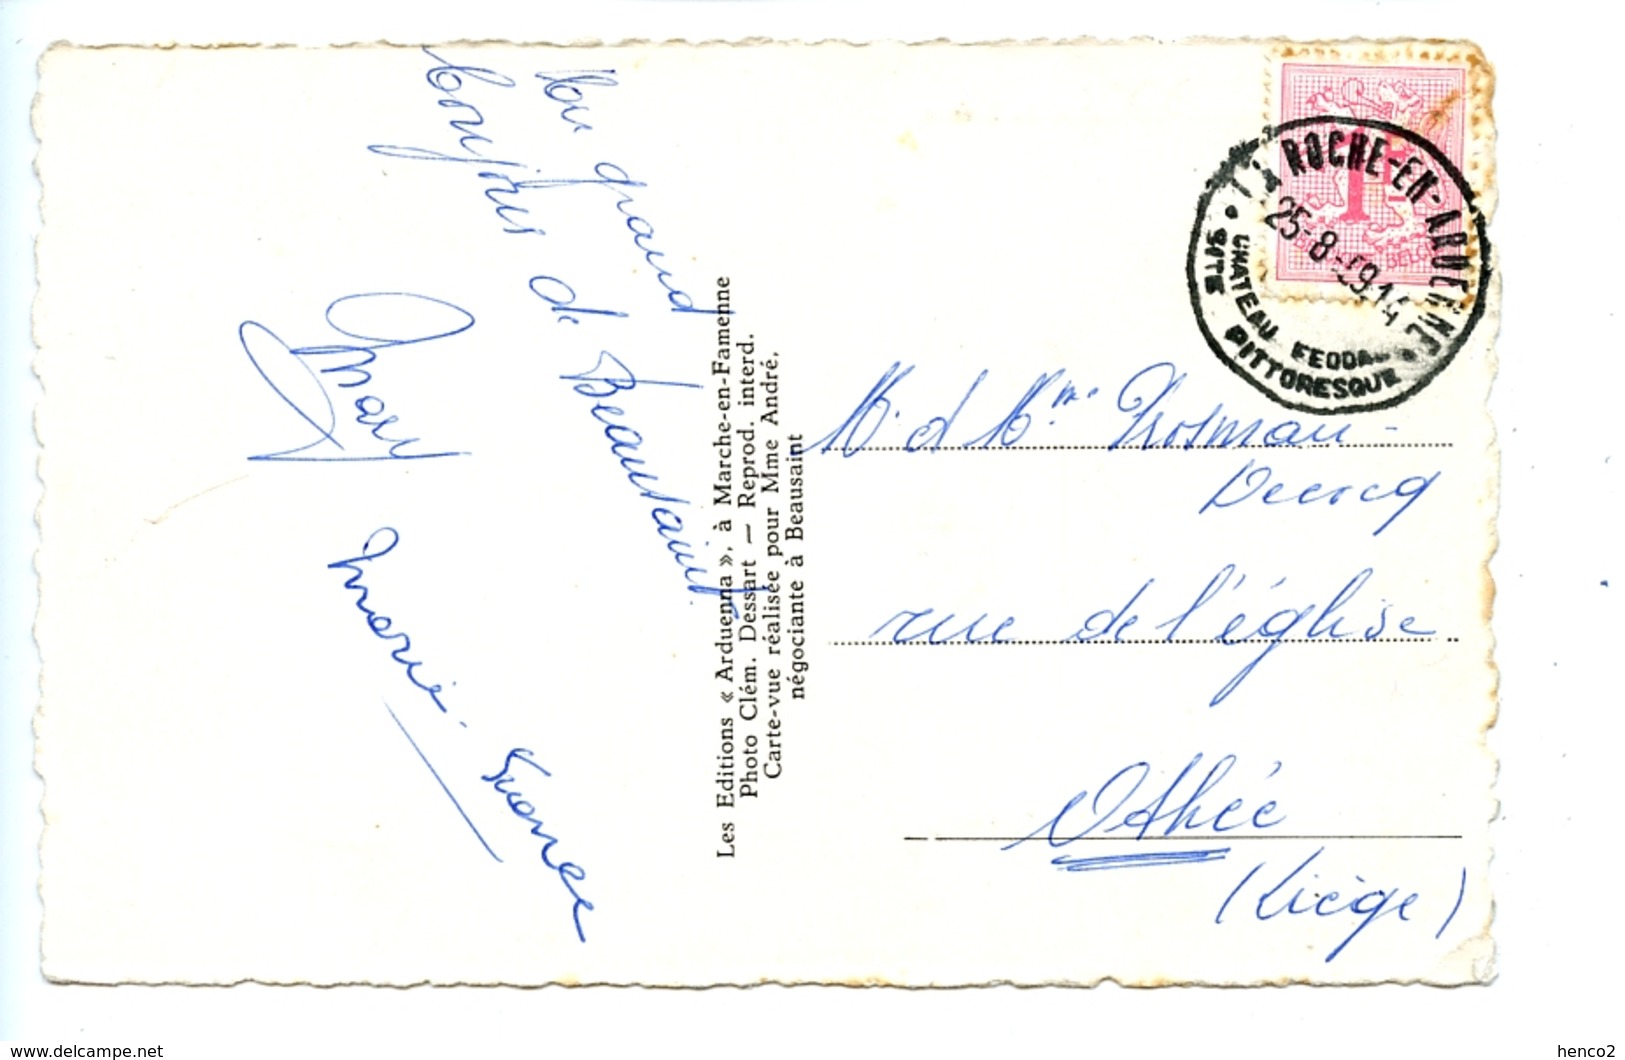 Un grand
bonjour de Beausaint.
Mary
Marie-
Les Editions « Arduenna », à Marche-en-Famenne
Photo Clém. Dessart — Reprod. interd.
Carte-vue réalisée pour Mme André,
négociante à Beausaint
LA ROCHE-EN-ARDENNE
25-8-59 14
CHATEAU FEODAL
SITE PITTORESQUE
1F
M. et Mme Frosman-
Dercq
rue de l'église
Othée
(Liège)
www.delcampe.net
henco2